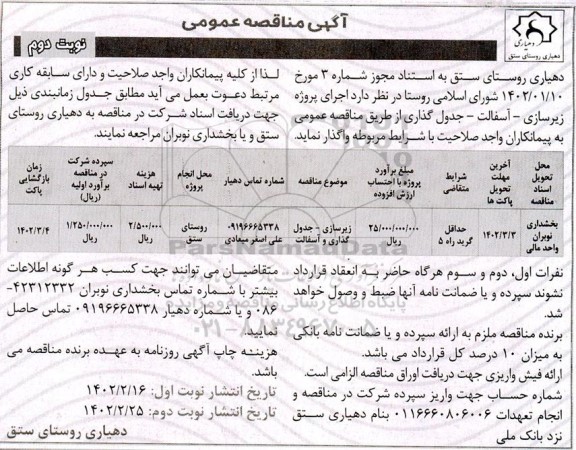 آگهی مناقصه عمومی
نوبت دوم
دهیاری
دهیاری روستای ستق
دهیاری روستای ستق به استناد مجوز شماره ۳ مورخ
۱۴۰۲/۰۱/۱۰ شورای اسلامی روستا در نظر دارد اجرای پروژه
زیرسازی – آسفالت – جدول گذاری از طریق مناقصه عمومی
به پیمانکاران واجد صلاحیت با شرایط مربوطه واگذار نماید.
لـذا از کلیه پیمانکاران واجد صلاحیت و دارای سابقه کاری
مرتبط دعوت بعمل می آید مطابق جدول زمانبندی ذیل
جهت دریافت اسناد شرکت در مناقصه به دهیاری روستای
ستق و یا بخشداری نوبران مراجعه نمایند.
محل تحویل اسناد مناقصه
آخرین مهلت تحویل پاکت ها
شرایط متقاضی
مبلغ برآورد پروژه با احتساب ارزش افزوده
موضوع مناقصه
شماره تماس دهیار
محل انجام پروژه
هزینه تهیه اسناد
سپرده شرکت در مناقصه برآورد اولیه (ریال)
زمان بازگشایی پاکت
بخشداری نوبران واحد مالی
۱۴۰۲/۳/۳
حداقل گرید راه ۵
۲۵/۰۰۰/۰۰۰/۰۰۰ ریال
زیرسازی – جدول گذاری و آسفالت
۰۹۱۹۶۶۶۵۳۳۸ علی اصغر میعادی
روستای ستق
۲/۵۰۰/۰۰۰ ریال
۱/۲۵۰/۰۰۰/۰۰۰ ریال
۱۴۰۲/۳/۴
نفرات اول، دوم و سوم هرگاه حاضر بـه انعقاد قرارداد
نشوند سپرده و یا ضمانت نامه آنها ضبط و وصول خواهد
شد.
برنده مناقصه ملزم به ارائه سپرده و یا ضمانت نامه بانکی
به میزان ۱۰ درصد کل قرارداد می باشد.
ارائه فیش واریزی جهت دریافت اوراق مناقصه الزامی است.
شماره حساب جهت واریز سپرده شرکت در مناقصه و
انجام تعهدات ۰۱۱۶۶۶۰۸۰۶۰۰۶ بنام دهیاری ستـق
نزد بانک ملی
متقاضیـان می توانند جهت کسب هـر گونه اطلاعات
بیشتر با شماره تماس بخشداری نوبران ۴۲۳۱۲۳۳۲-
۰۸۶ و یا شماره دهیار ۰۹۱۹۶۶۶۵۳۳۸ تماس حاصل
نمایید.
هزینـه چاپ آگهی روزنامه به عهـده برنده مناقصه می
باشد.
تاریخ انتشار نوبت اول: ۱۴۰۲/۲/۱۶
تاریخ انتشار نوبت دوم: ۱۴۰۲/۲/۲۵
دهیاری روستای ستق